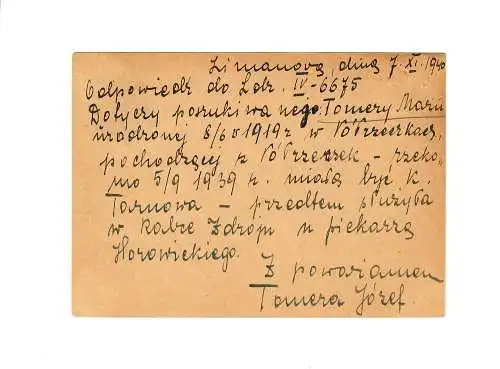 Limanova, dnia 7.XI.1940
Odpowiedź do Ldz. IV-6675
Dotyczy poszukiwanego Tomery Marii
urodzonej 8/ 1919 r w Pobrzeczkach,
pochodzącej z Pobrzeczek - rzeko-
mo 5/9 1939 r. miała być k.
Tarnowa - przedtem służyła
w Rabce Zdroju u piekarza
Horowickiego.
Z poważaniem
Tomera Józef.